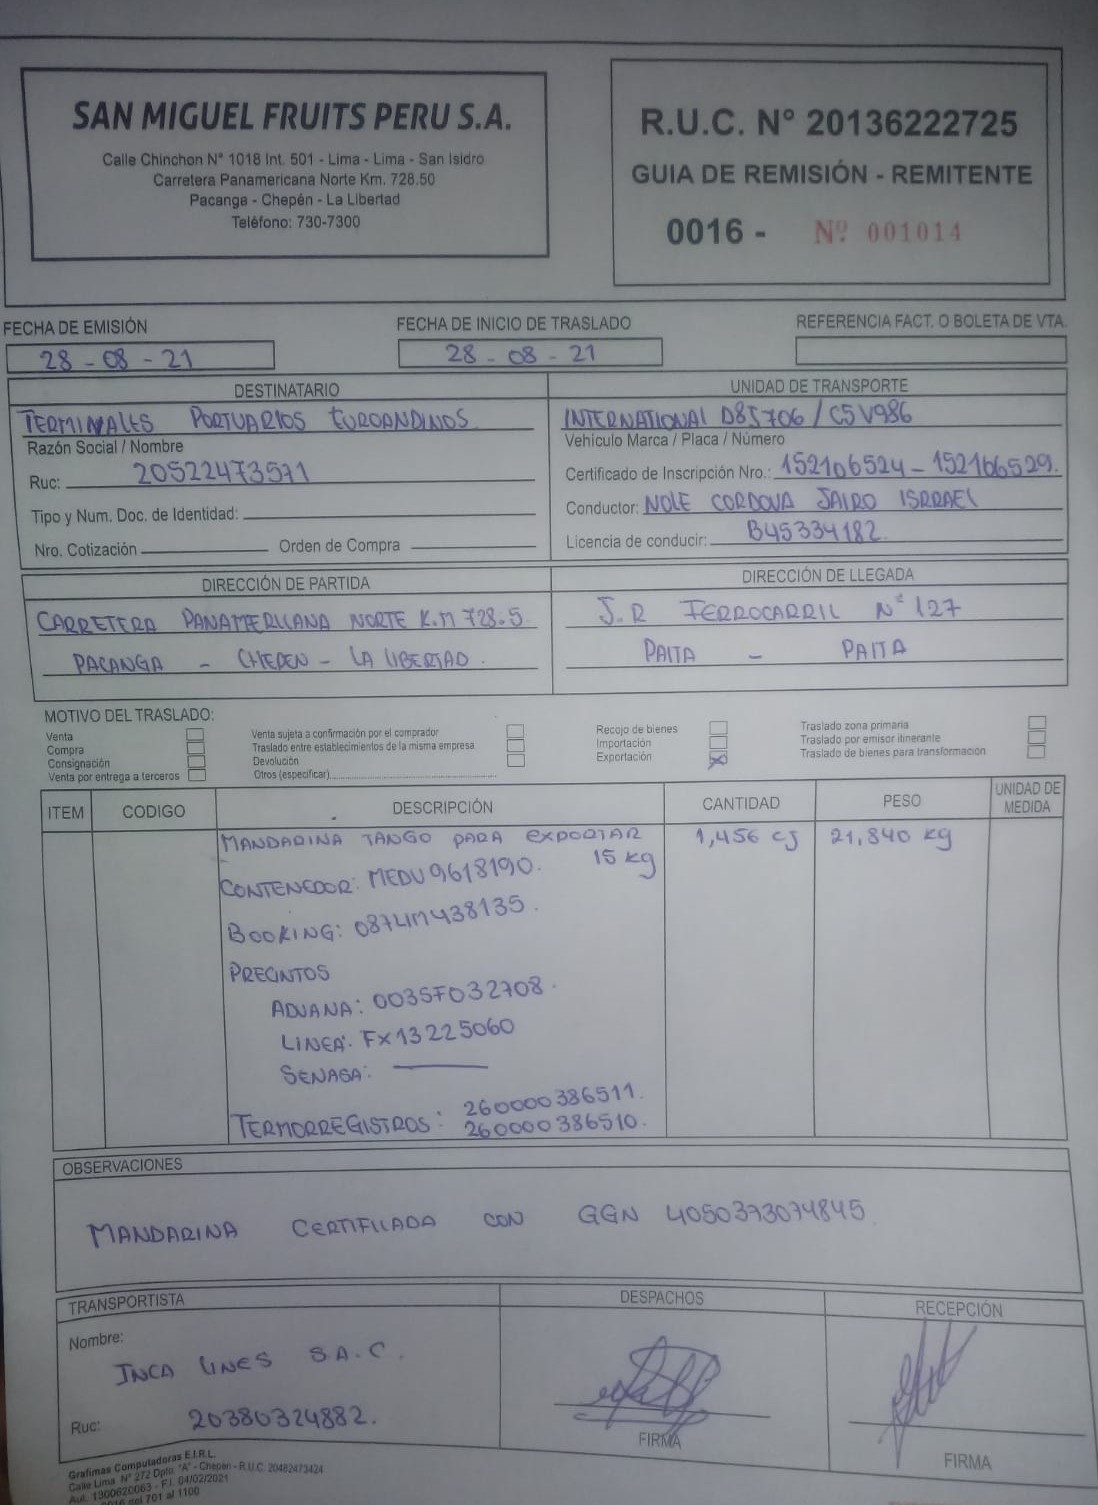 SAN MIGUEL FRUITS PERU S.A.
Calle Chinchon N° 1018 Int. 501 - Lima - Lima - San Isidro
Carretera Panamericana Norte Km. 728.50
Pacanga - Chepén - La Libertad
Teléfono: 730-7300
R.U.C. N° 20136222725
GUIA DE REMISIÓN - REMITENTE
0016 - Nº 001014
FECHA DE EMISIÓN
28 - 08 - 21
FECHA DE INICIO DE TRASLADO
28 - 08 - 21
REFERENCIA FACT. O BOLETA DE VTA.
DESTINATARIO
TERMINALES PORTUARIOS EUROANDINOS
Razón Social / Nombre
Ruc: 20522473571
Tipo y Num. Doc. de Identidad:
Nro. Cotización Orden de Compra
UNIDAD DE TRANSPORTE
INTERNATIONAL D85706 / C5V986
Vehiculo Marca / Placa / Número
Certificado de Inscripción Nro.: 152106524 - 152166529.
Conductor: NOLE CORDOVA JAIRO ISRRAEL
Licencia de conducir: B45334182
DIRECCIÓN DE PARTIDA
CARRETERA PANAMERICANA NORTE K.M 728.5
PACANGA - CHEPEN - LA LIBERTAD.
DIRECCIÓN DE LLEGADA
J.R FERROCARRIL N° 127
PAITA - PAITA
MOTIVO DEL TRASLADO:
Venta
Compra
Consignación
Venta por entrega a terceros
Venta sujeta a confirmación por el comprador
Traslado entre establecimientos de la misma empresa
Devolución
Otros (especificar)
Recojo de bienes
Importación
Exportación X
Traslado zona primaria
Traslado por emisor itinerante
Traslado de bienes para transformación
ITEM CODIGO DESCRIPCIÓN CANTIDAD PESO UNIDAD DE MEDIDA
MANDARINA TANGO PARA EXPORTAR 1,456 cj 21,840 kg
15 kg
CONTENEDOR: MEDU9618190.
BOOKING: 087LM438135.
PRECINTOS
ADUANA: 0035F032708.
LINEA: FX13225060
SENASA:
TERMORREGISTROS: 260000386511.
260000386510.
OBSERVACIONES
MANDARINA CERTIFICADA CON GGN 4050373074845
TRANSPORTISTA
Nombre:
INCA LINES S.A.C.
Ruc: 20380324882.
DESPACHOS
FIRMA
RECEPCIÓN
FIRMA
Grafimas Computadoras E.I.R.L.
Calle Lima N° 272 Dpto. "A" - Chepen - R.U.C. 20482473424
Aut. 1300620063 - F.I. 04/02/2021
0016 del 701 al 1100